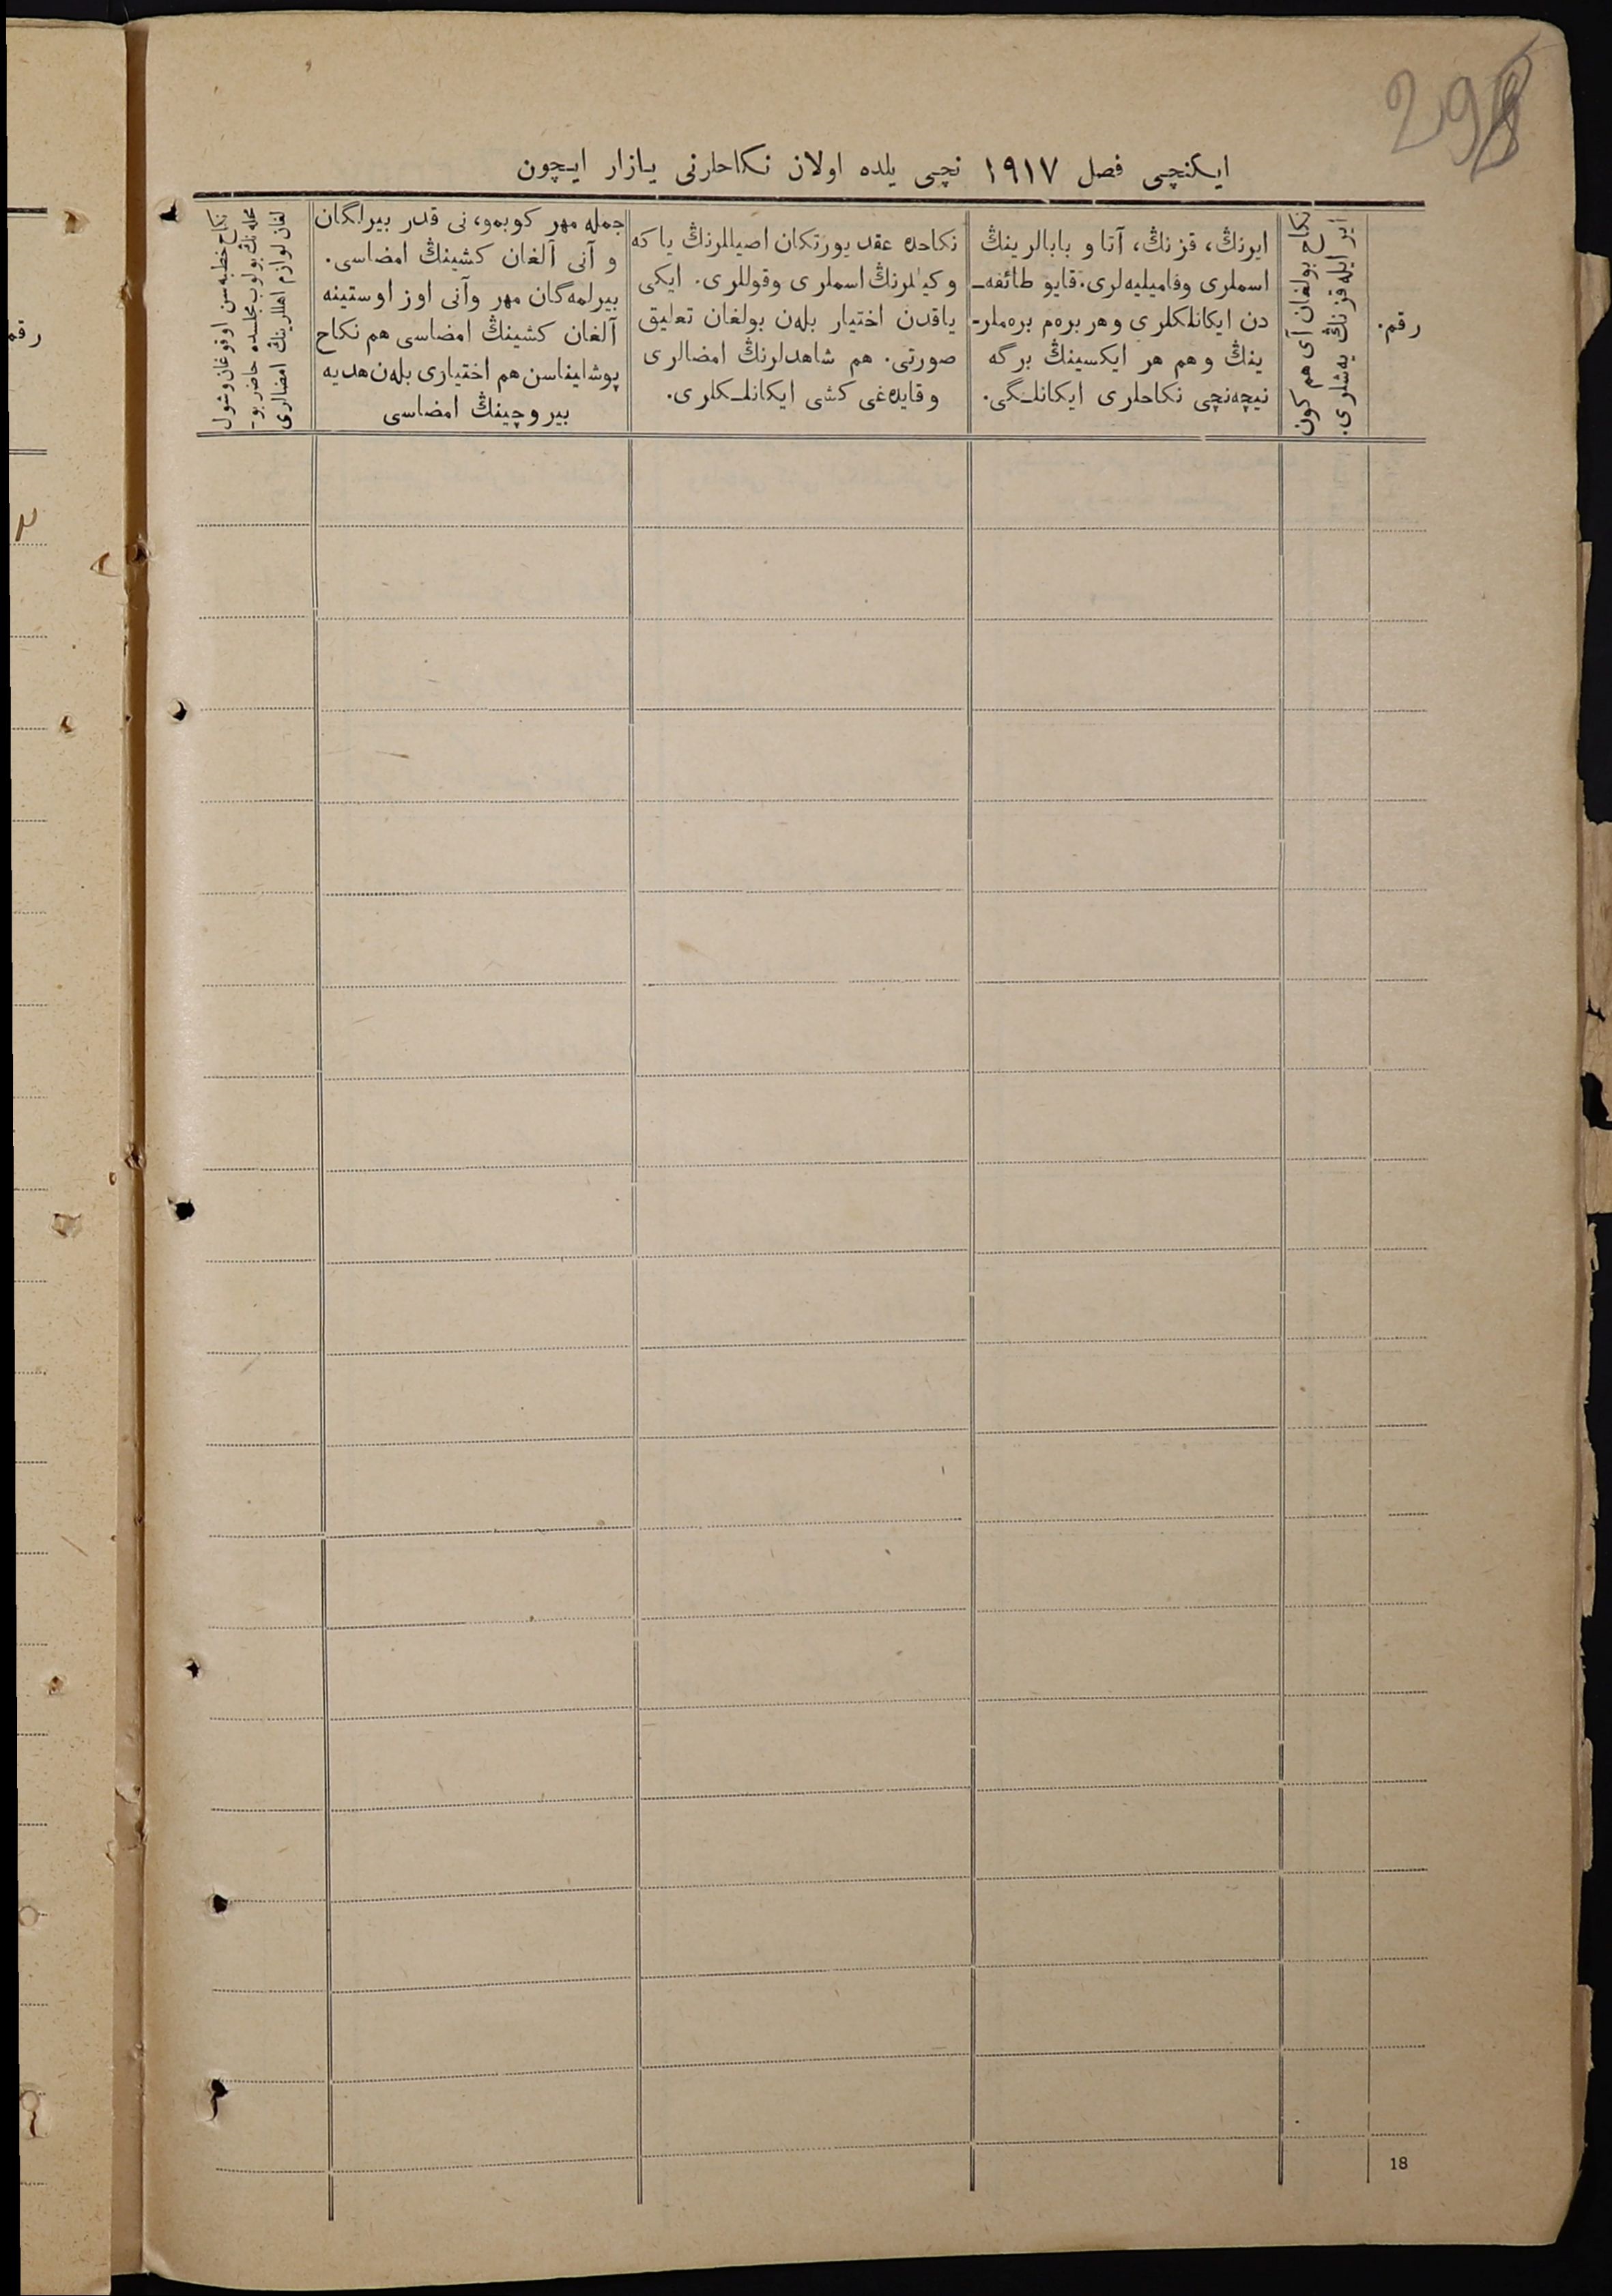 298
ایکنچی فصل ۱۹۱۷ نچی یلده اولان نکاحلرنی یازار ایچون
رقم.
نکاح بولغان آی هم کون
ایر ایله قزنڭ یه‌شلری.
ایرنڭ، قزنڭ، آتا و بابالرینڭ
اسملری وفامیلیه‌لری. قایو طائفه‌ـ
دن ایکانلکلری وهر بره‌م بره‌ملر-
ینڭ وهم هر ایکسینڭ برگه
نیچه‌نچی نکاحلری ایکانلـگی.
نکاحده عقد یورتکان اصیللرنڭ یا که
وکیللرنڭ اسملری وقوللری. ایکی
یاقدن اختیار بله‌ن بولغان تعلیق
صورتی. هم شاهدلرنڭ امضالری
وقایده‌غی کشی ایکانلـکلری.
جمله مهر کوبمو، نی قدر بیرلگان
و آنی آلغان کشینڭ امضاسی.
بیرلمه‌گان مهر وآنی اوز اوستینه
آلغان کشینڭ امضاسی هم نکاح
پوشلیناسن هم اختیاری بله‌ن هدیه
بیروچینڭ امضاسی
نکاح خطبه‌سن اوقوغان وشول
محله‌نڭ بولوب مجلسده حاضر بو-
لغان لوازم اهللرینڭ امضالری
18
رقم